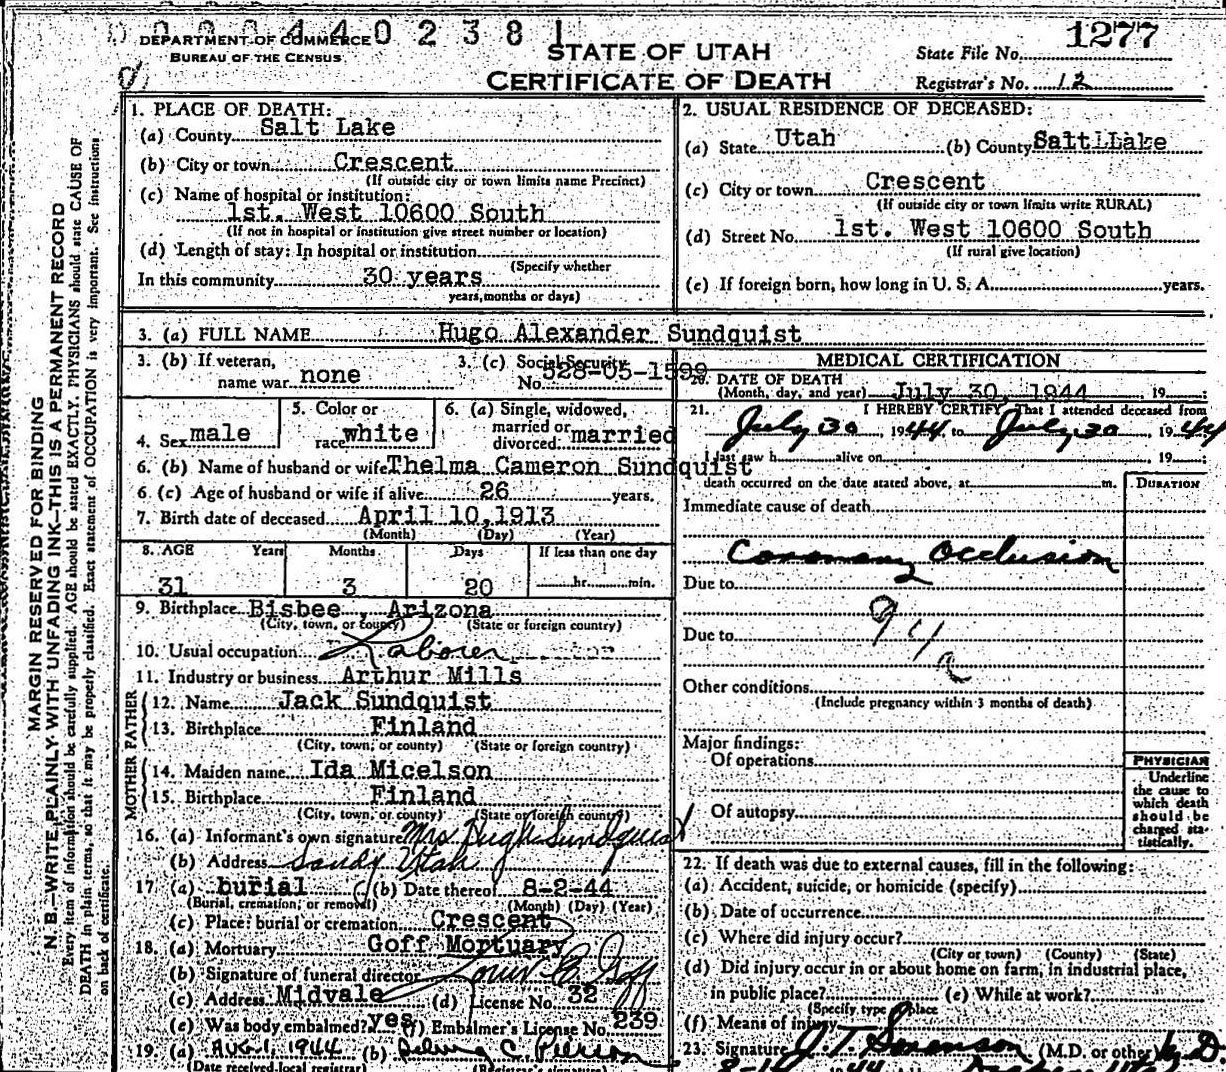 0004402381
DEPARTMENT OF COMMERCE
BUREAU OF THE CENSUS
STATE OF UTAH
CERTIFICATE OF DEATH
State File No. 1277
Registrar's No. 12
MARGIN RESERVED FOR BINDING
N. B.—WRITE PLAINLY WITH UNFADING INK—THIS IS A PERMANENT RECORD
Every item of information should be carefully supplied. AGE should be stated EXACTLY. PHYSICIANS should state CAUSE OF
DEATH in plain terms, so that it may be properly classified. Exact statement of OCCUPATION is very important. See instructions
on back of certificate.
1. PLACE OF DEATH:
(a) County Salt Lake
(b) City or town Crescent
(If outside city or town limits name Precinct)
(c) Name of hospital or institution:
1st. West 10600 South
(If not in hospital or institution give street number or location)
(d) Length of stay: In hospital or institution
(Specify whether
In this community 30 years
years, months or days)
2. USUAL RESIDENCE OF DECEASED:
(a) State Utah (b) County Salt LLake
(c) City or town Crescent
(If outside city or town limits write RURAL)
(d) Street No. 1st. West 10600 South
(If rural give location)
(e) If foreign born, how long in U. S. A. years.
3. (a) FULL NAME Hugo Alexander Sundquist
3. (b) If veteran,
name war none
3. (c) Social Security
No. 528-05-1599
4. Sex male
5. Color or
race white
6. (a) Single, widowed,
married or
divorced. married
6. (b) Name of husband or wife Thelma Cameron Sundquist
6. (c) Age of husband or wife if alive 26 years.
7. Birth date of deceased April 10, 1913
(Month) (Day) (Year)
8. AGE Years Months Days If less than one day
31 3 20 hr. min.
9. Birthplace Bisbee , Arizona
(City, town, or county) (State or foreign country)
10. Usual occupation Laborer
11. Industry or business Arthur Mills
FATHER
12. Name Jack Sundquist
13. Birthplace Finland
(City, town, or county) (State or foreign country)
MOTHER
14. Maiden name Ida Micelson
15. Birthplace Finland
(City, town, or county) (State or foreign country)
16. (a) Informant's own signature Mrs Hugh Sundquist
(b) Address Sandy Utah
17. (a) burial (b) Date thereof 8-2-44
(Burial, cremation, or removal) (Month) (Day) (Year)
(c) Place: burial or cremation Crescent
18. (a) Mortuary Goff Mortuary
(b) Signature of funeral director Louis C. Goff
(c) Address Midvale (d) License No. 32
(e) Was body embalmed? yes (f) Embalmer's License No. 239
19. (a) Aug 1, 1944 (b) C. Pierson
(Date received local registrar) (Registrar's signature)
MEDICAL CERTIFICATION
20. DATE OF DEATH
(Month, day, and year) July 30, 1944, 19
21. I HEREBY CERTIFY, That I attended deceased from
July 30, 1944, to July 30, 1944
I last saw h alive on 19
death occurred on the date stated above, at m.
DURATION
Immediate cause of death
Coronary Occlusion
Due to
94a
Due to
Other conditions
(Include pregnancy within 3 months of death)
Major findings:
Of operations
Of autopsy
PHYSICIAN
Underline
the cause to
which death
should be
charged sta-
tistically.
22. If death was due to external causes, fill in the following:
(a) Accident, suicide, or homicide (specify)
(b) Date of occurrence
(c) Where did injury occur?
(City or town) (County) (State)
(d) Did injury occur in or about home on farm, in industrial place,
in public place? (e) While at work?
(Specify type place
(f) Means of injury
23. Signature J. T. Sorenson (M.D. or other) M.D.